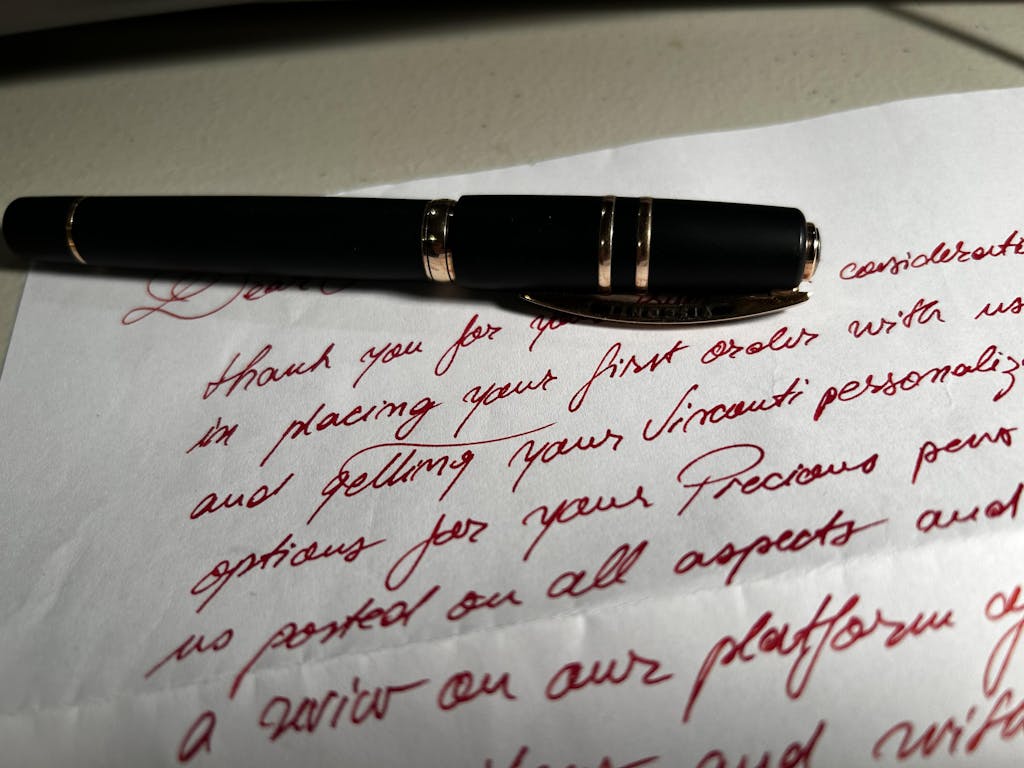 Dear
consideratio
thank you for
in placing your first order with us
and getting your Visconti personaliz
options for your Precious pens
us posted on all aspects and
a reviw on our platform
and with
VISCONTI